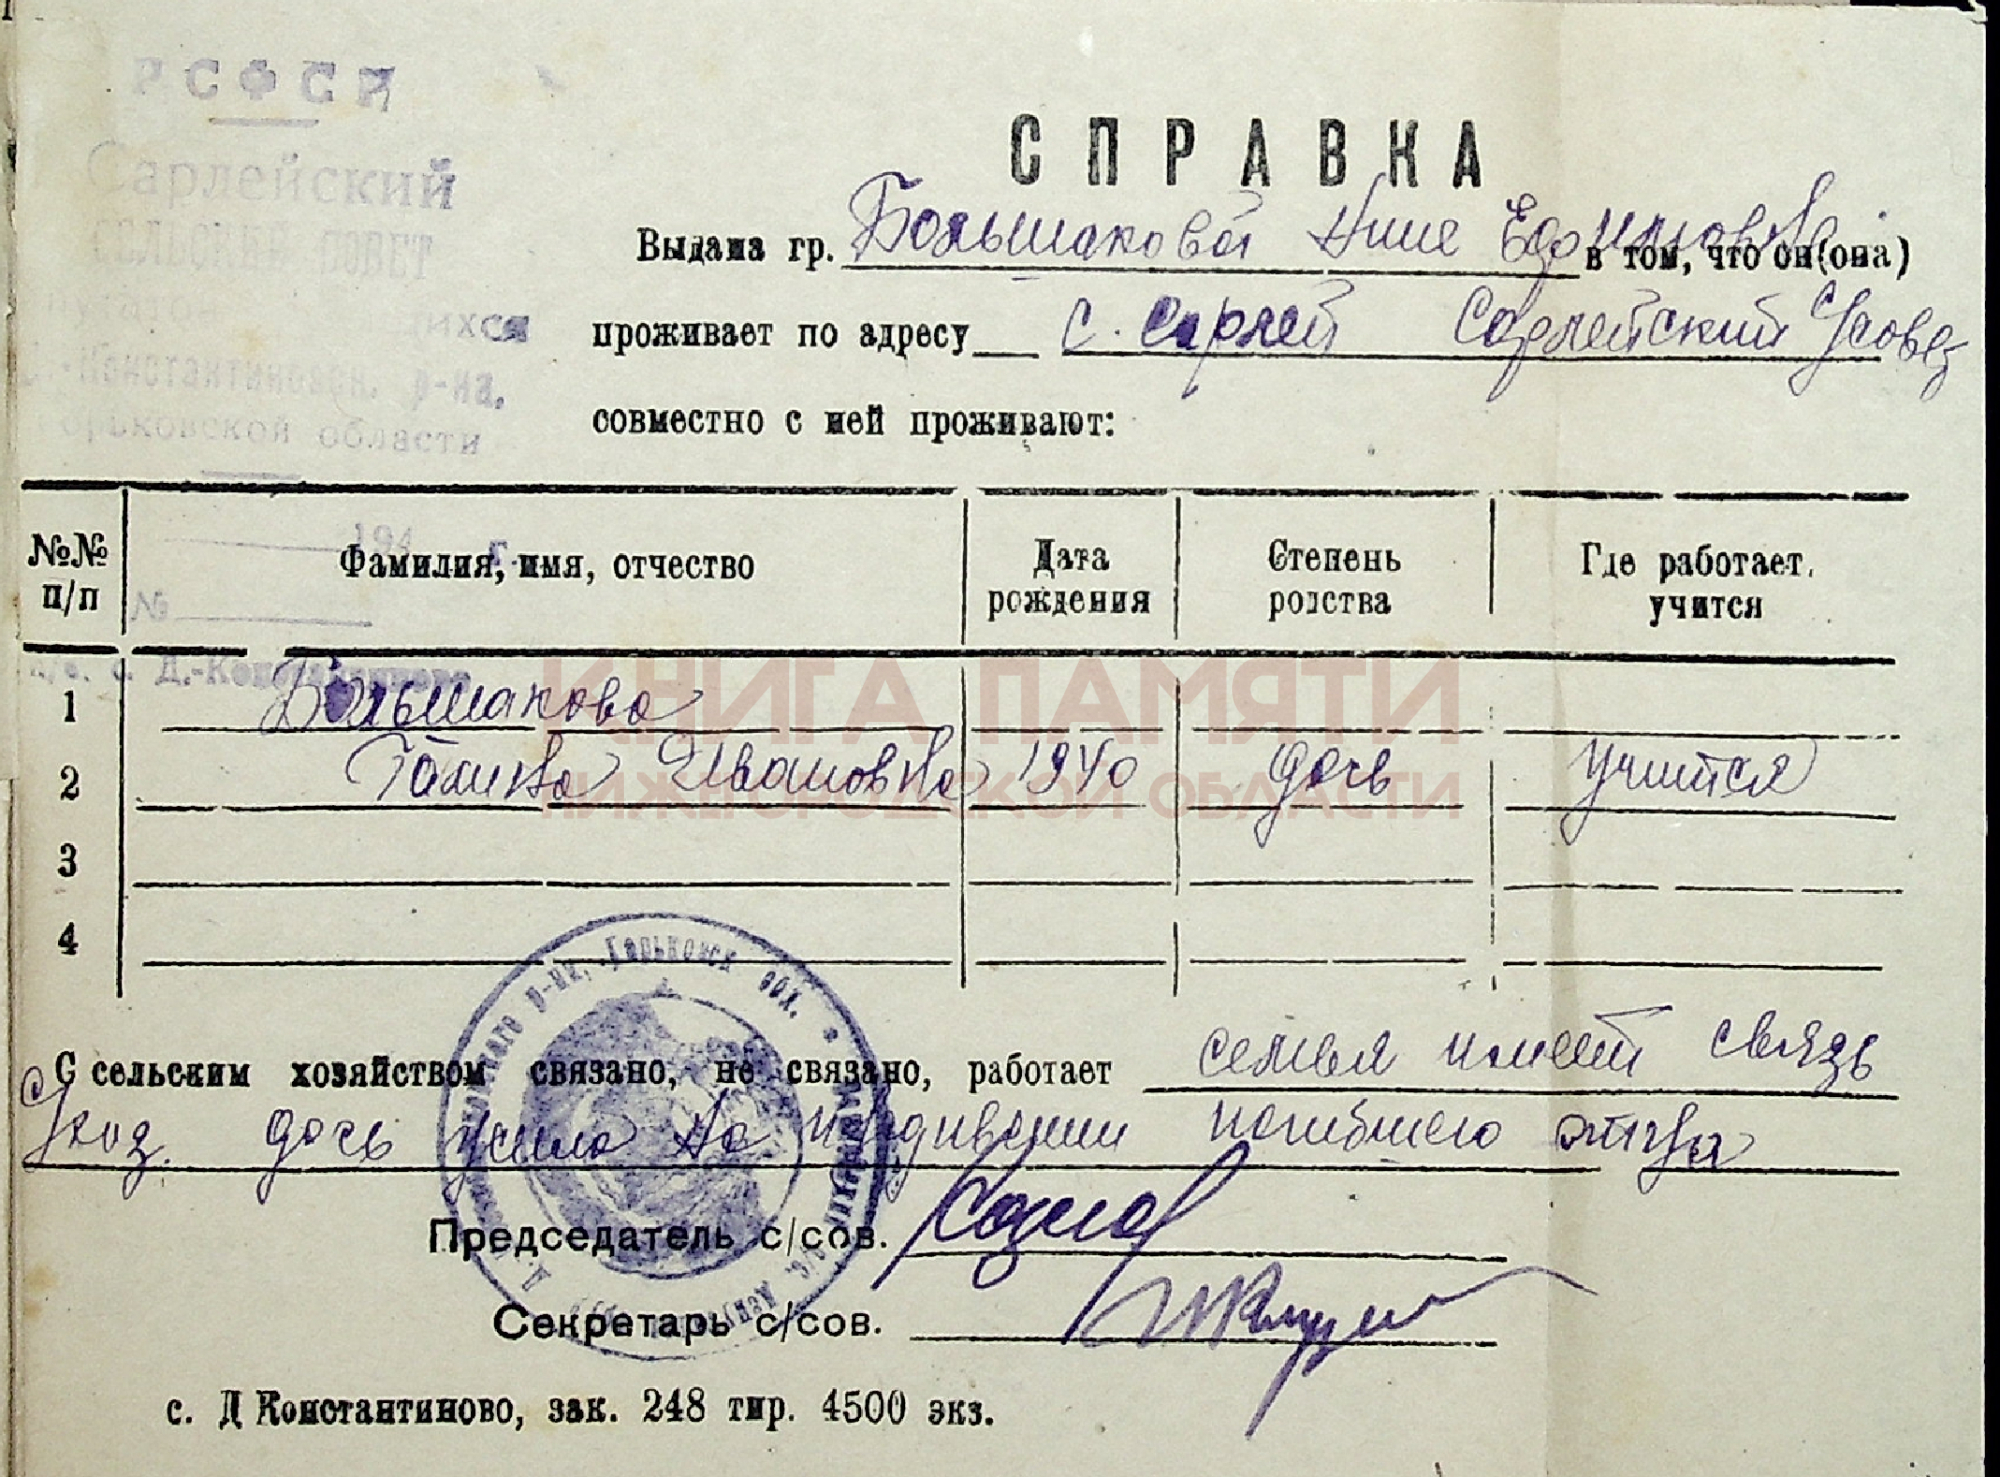 РСФСР
Сарлейский
СЕЛЬСКИЙ СОВЕТ
Д.-Константиновск. р-на,
Горьковской области
194 г.
№
п/о. с. Д.-Константиново
СПРАВКА
Выдана гр. Большаковой Нине Ефимовне в том, что он(она)
проживает по адресу с. Сарлей Сарлейский с/совет
совместно с ней проживают:
№№ п/п Фамилия, имя, отчество Дата рождения Степень родства Где работает, учится
1 Большакова
2 Галина Ивановна 1940 дочь учится
3
4
С сельским хозяйством связано, не связано, работает семья имеет связь
с/хоз. дочь была на иждивении погибшего отца
Председатель с/сов.
Секретарь с/сов.
с. Д Константиново, зак. 248 тир. 4500 экз.
КНИГА ПАМЯТИ
НИЖЕГОРОДСКОЙ ОБЛАСТИ